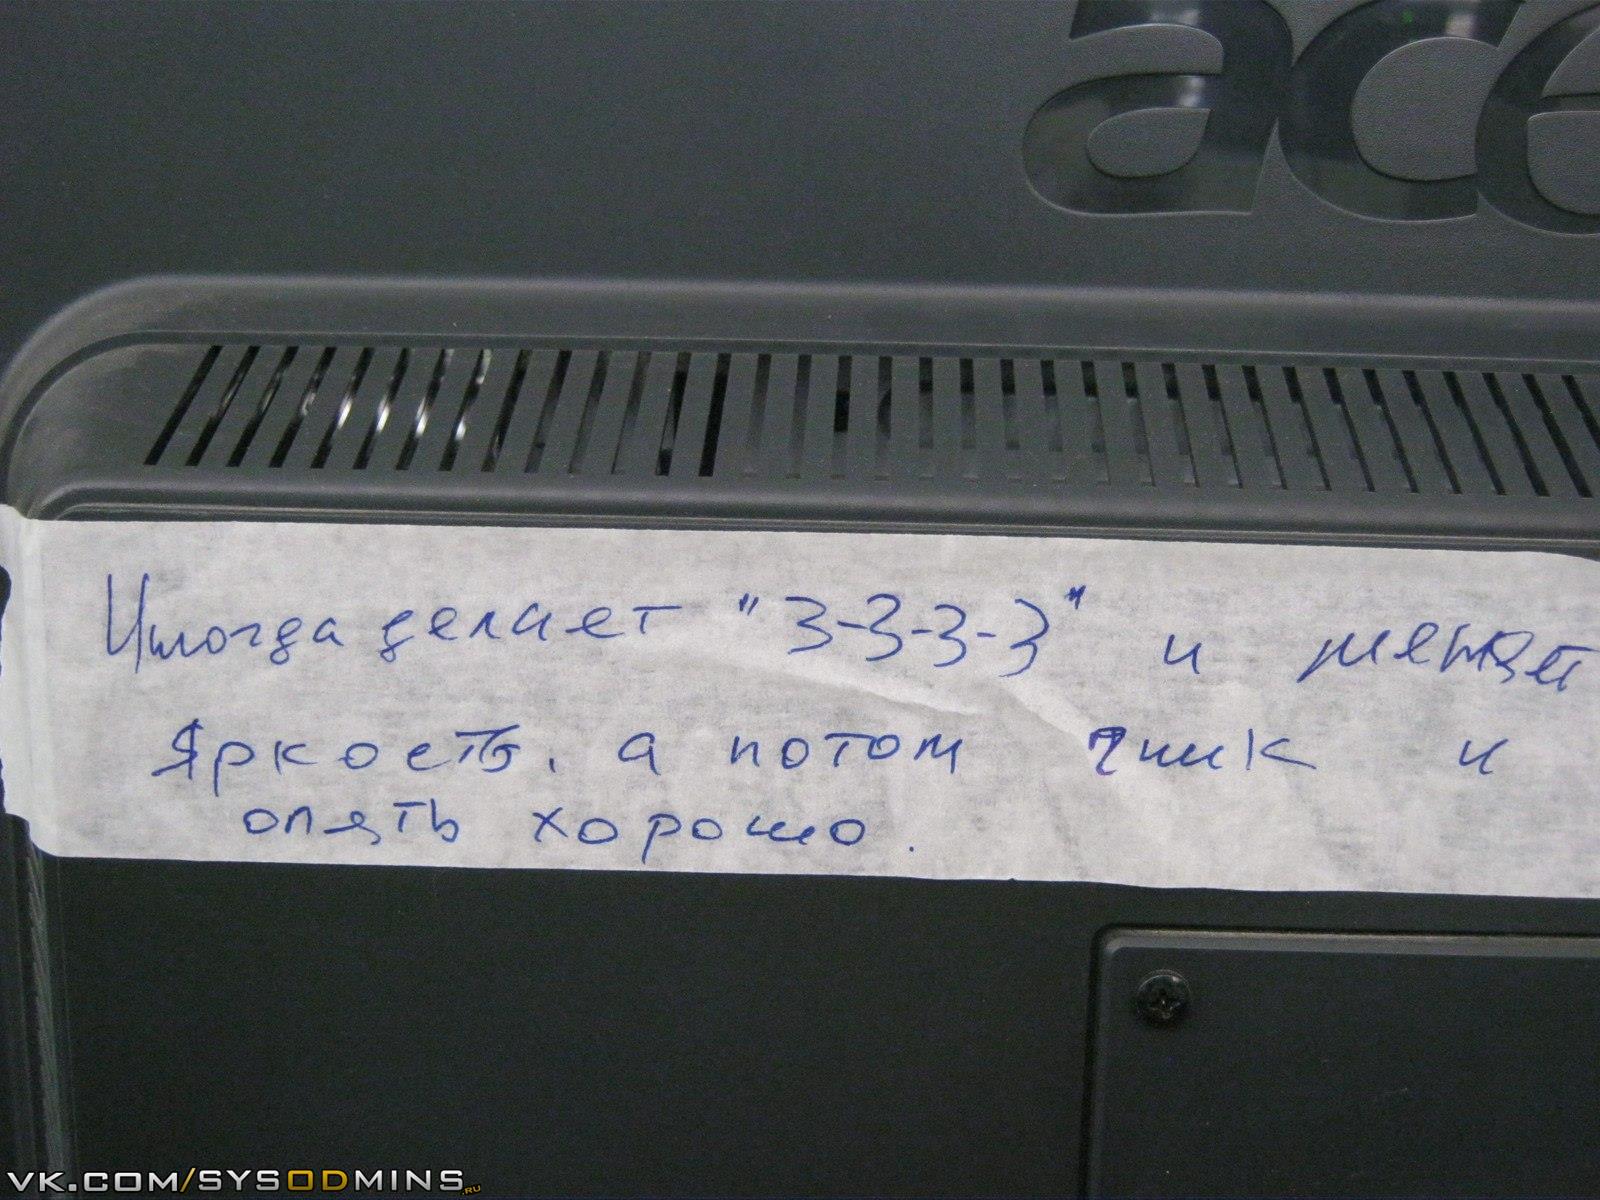 acer
Иногда делает "З-З-З-З" и меняет
яркость, а потом чик и
опять хорошо.
VK.COM/SYSODMINS.RU